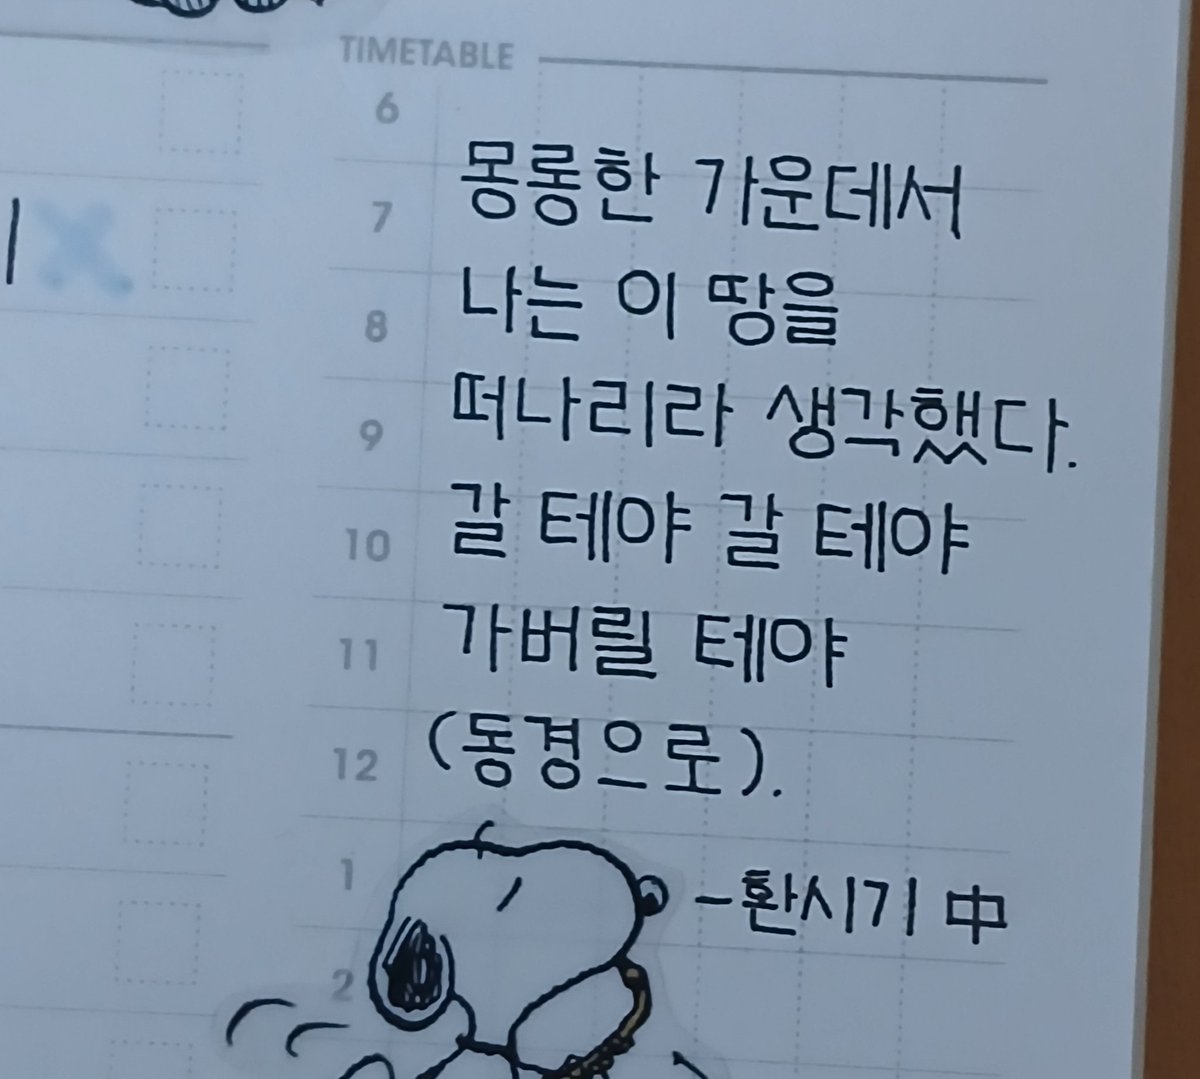 TIMETABLE
6
몽롱한 가운데서
7
나는 이 땅을
8
떠나리라 생각했다.
9
갈 테야 갈 테야
10
가버릴 테야
11
(동경으로).
12
1
-환시기 中
2